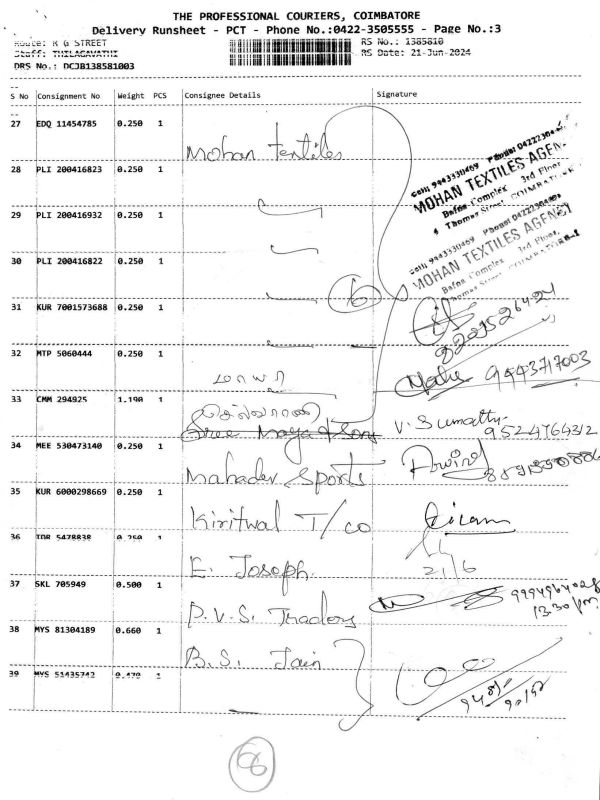 THE PROFESSIONAL COURIERS, COIMBATORE
Delivery Runsheet - PCT - Phone No.:0422-3505555 - Page No.:3
Route: R G STREET
RS No.: 1385810
Staff: THILAGAVATHI
RS Date: 21-Jun-2024
DRS No.: DCJB138581003
S No Consignment No Weight PCS Consignee Details Signature
27 EDQ 11454785 0.250 1 Mohan textiles
28 PLI 200416823 0.250 1
Cell: 9443330469 Phone:
MOHAN TEXTILES AGENCY
Bafna Complex 3rd Floor,
4 Thomas Street, COIMBATORE-1
29 PLI 200416932 0.250 1
Cell: 9443330469 Phone:
MOHAN TEXTILES AGENCY
Bafna Complex 3rd Floor,
Thomas Street, COIMBATORE-1
30 PLI 200416822 0.250 1
6
31 KUR 7001573688 0.250 1
8220526424
32 MTP 5060444 0.250 1
9443717003
33 CMM 294925 1.190 1
Sree Maya & Sons V. Sumathy
9524764312
34 MEE 530473140 0.250 1 Mahadev Sports
35 KUR 6000298669 0.250 1 Kiritwal T/co
36 IDR 5478838 0.250 1 E. Joseph
21/6
37 SKL 705949 0.500 1 P.V.S. Traders
13.30 pm
38 MYS 81304189 0.660 1 B.S. Jain
39 MYS 51435742 0.470 1
66